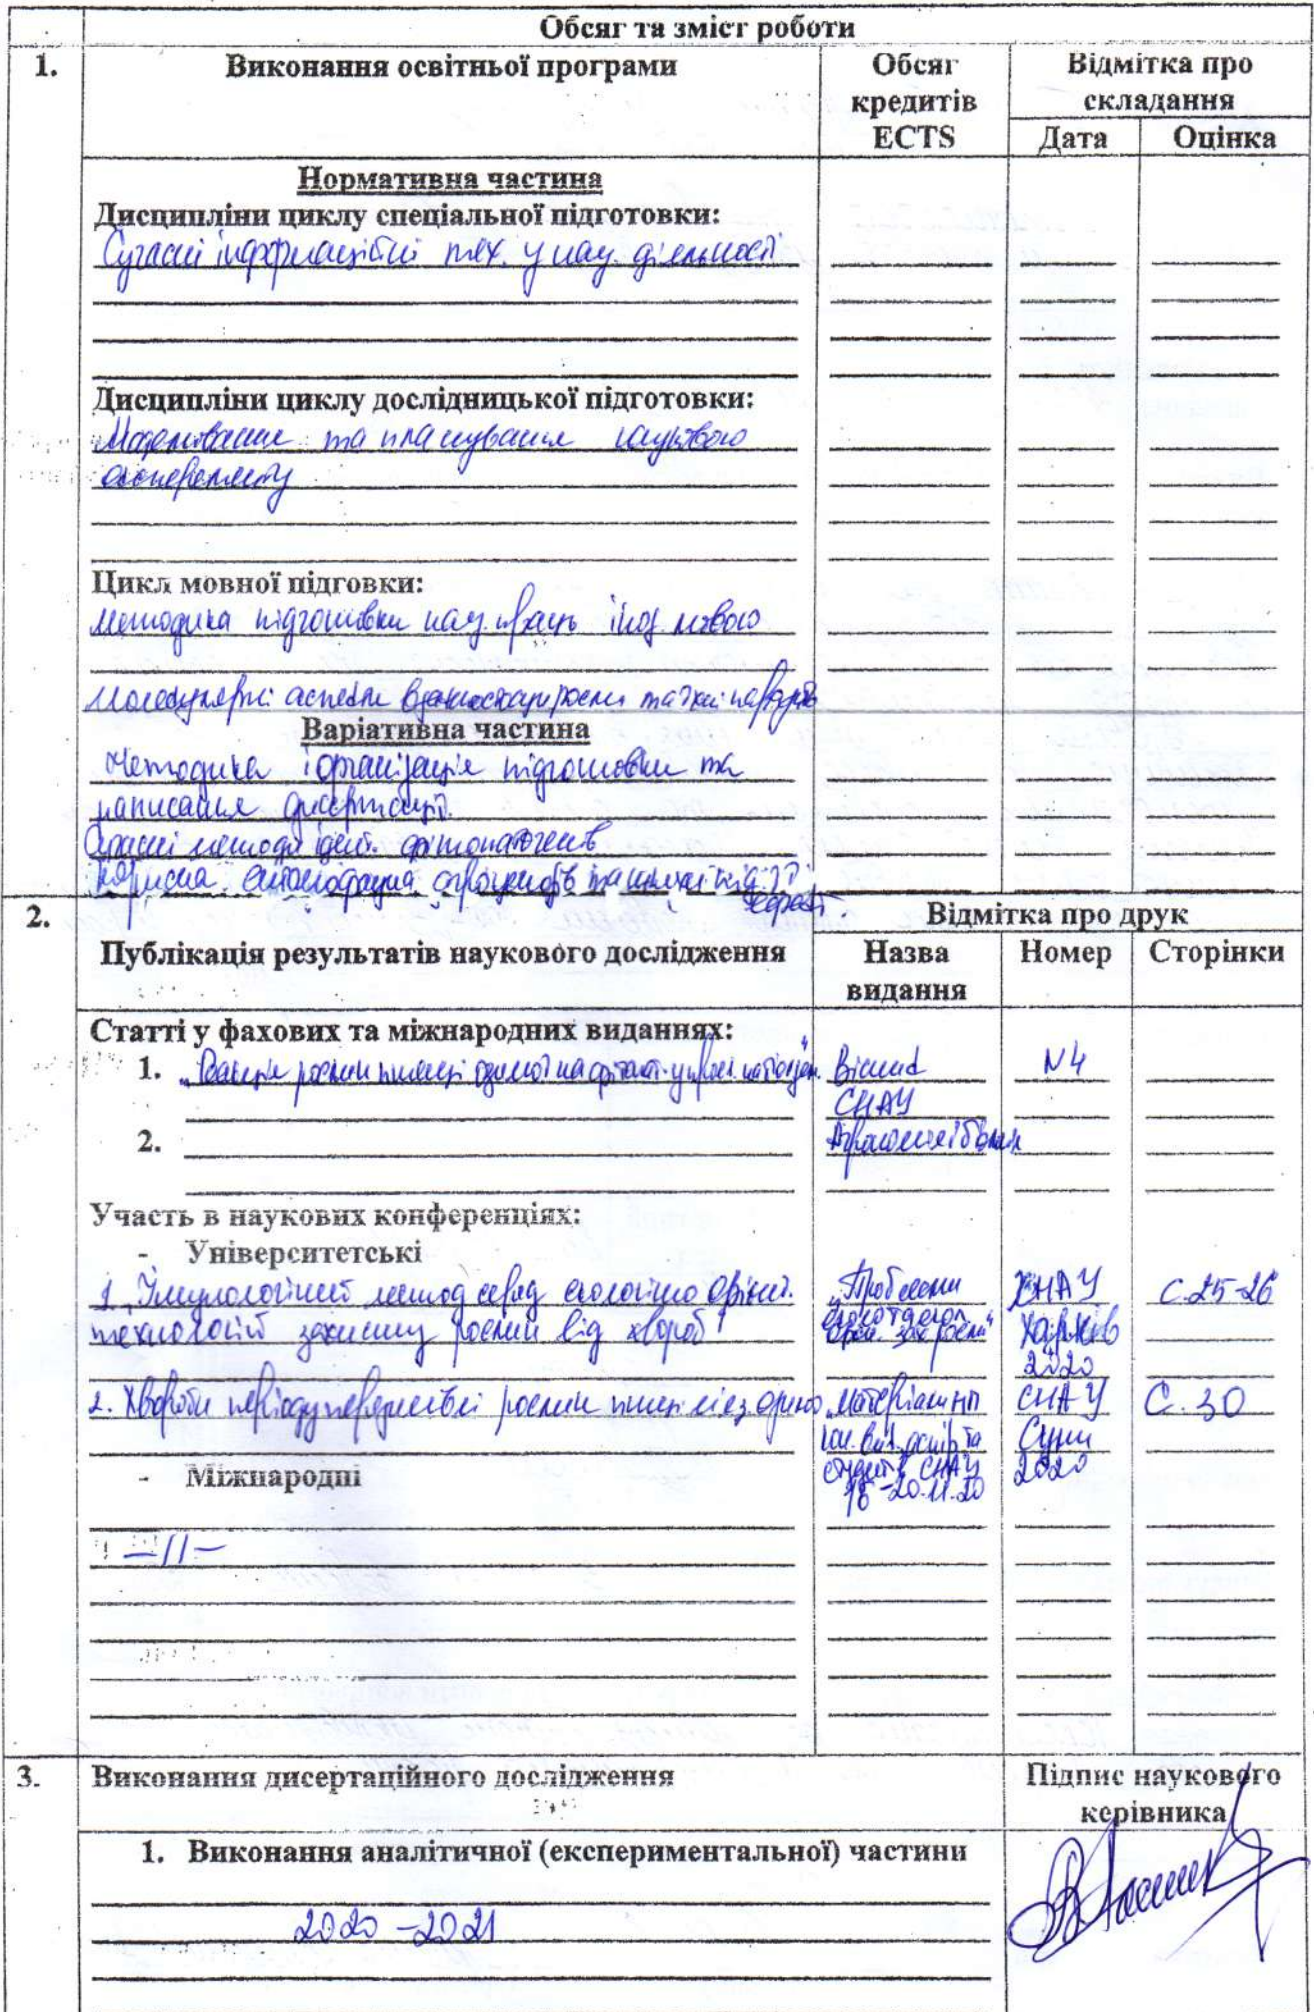 Обсяг та зміст роботи
1. Виконання освітньої програми
Обсяг кредитів ECTS
Відмітка про складання
Дата Оцінка
Нормативна частина
Дисципліни циклу спеціальної підготовки:
Сучасні інформаційні тех. у наук. діяльності
Дисципліни циклу дослідницької підготовки:
Моделювання та планування наукового
експеременту
Цикл мовної підговки:
Методика підготовки наук. праць іноз. мовою
Молекулярні аспекти рослин та
Варіативна частина
Методика і організація підготовки та
написання дисертації.
Сучасні методи ідент. фітопатогенів
Корисна ентомофауна агроценозів та
2. Публікація результатів наукового дослідження
Відмітка про друк
Назва видання
Номер
Сторінки
Статті у фахових та міжнародних виданнях:
1. „Реакція рослин пшениці озимої на Вісник N4
СНАУ
2. Агрономія і біолог
Участь в наукових конференціях:
- Університетські
1. Імунологічний метод серед екологічно орієнт. „Проблеми ХНАУ С.25-26
технологій захисту рослин від хвороб" Харків
2020
2. Хвороби періоду перезимівлі рослин пшениці оз. Матеріали нп СНАУ С.30
Суми
студентів СНАУ 2020
- Міжнародні
16-20.11.20
—//—
3. Виконання дисертаційного дослідження
Підпис наукового керівника
1. Виконання аналітичної (експериментальної) частини
2020-2021